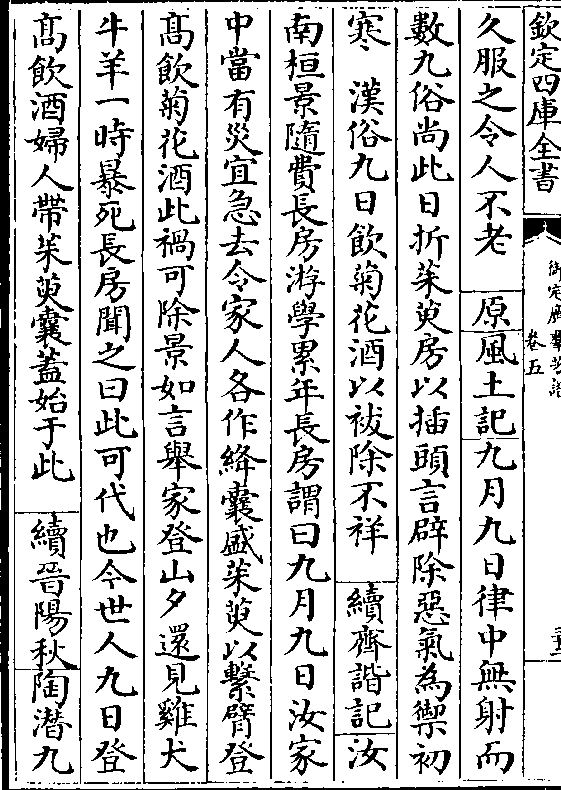 欽定四庫全書
卷五
久服之令人不老　原風土記九月九日律中無射而
數九俗尚此日折茱萸房以插頭言辟除惡氣為禦初
寒　漢俗九日飲菊花酒以祓除不祥　續齊諧記汝
南桓景隨費長房游學累年長房謂曰九月九日汝家
中當有災宜急去令家人各作絳囊盛茱萸以繫臂登
髙飲菊花酒此禍可除景如言舉家登山夕還見雞犬
牛羊一時暴死長房聞之曰此可代也今世人九日登
髙飲酒婦人帶茱萸囊蓋始于此　續晉陽秋陶潛九